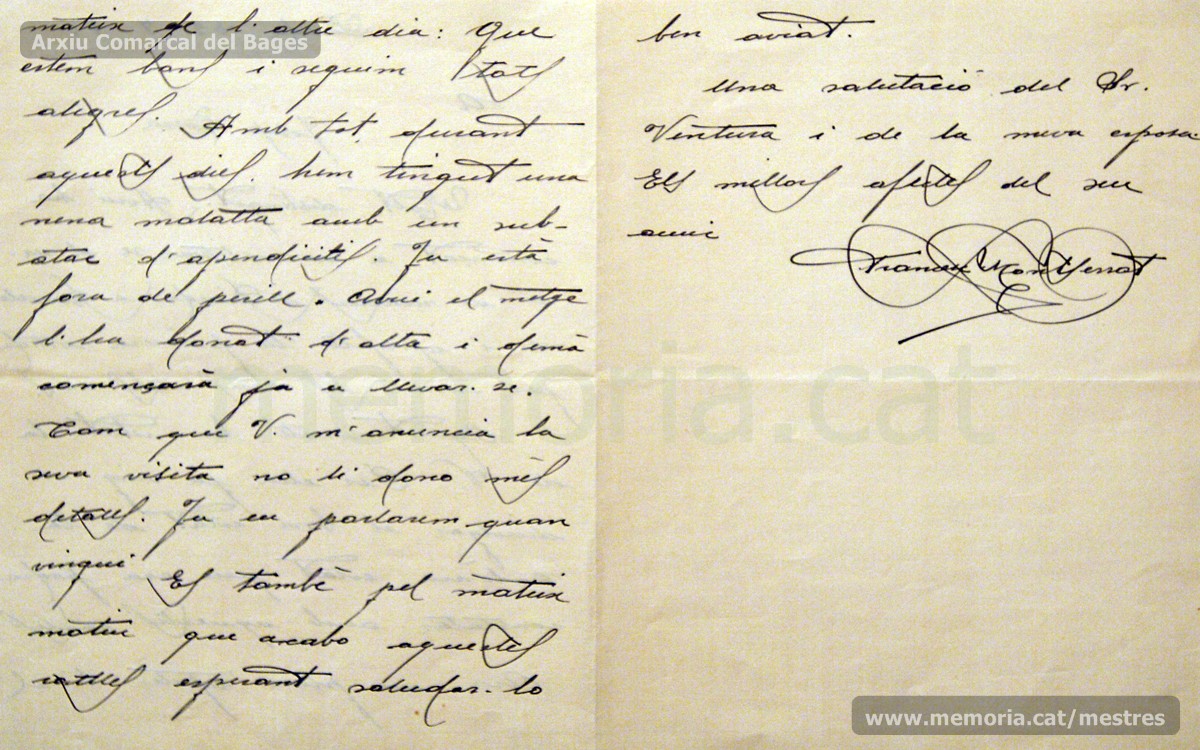 mateix de l'altre dia: Que
Arxiu Comarcal del Bages
estem bons i seguim tots
alegres.
Amb tot, durant
aquests dies. hem tingut una
nena malalta amb un sub-
atac d'apendicitis. Ja està
fora de perill. Avui el metge
l'ha donat d'alta i demà
començarà ja a llevar-se.
Com que V. m'anuncia la
seva visita no li dono més
detalls. Ja en parlarem quan
vingui
Es també pel mateix
motiu que acabo aquestes
ratlles esperant saludar-lo
ben aviat.
Una salutació del Sr.
Ventura i de la meva esposa
Els millors afectes del seu
amic
Francesc Montserrat
memoria.cat
www.memoria.cat/mestres